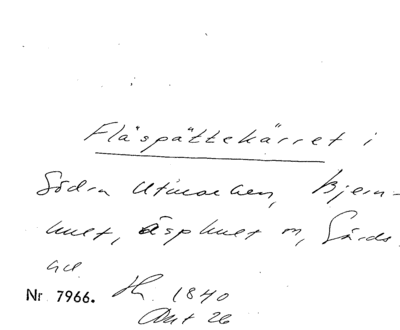 Flåspättekärret i
Södra Utmarken, Bjern-
hult, Äsphult m, Gärds
hd.
Nr 7966. Hh. 1840
Akt 26